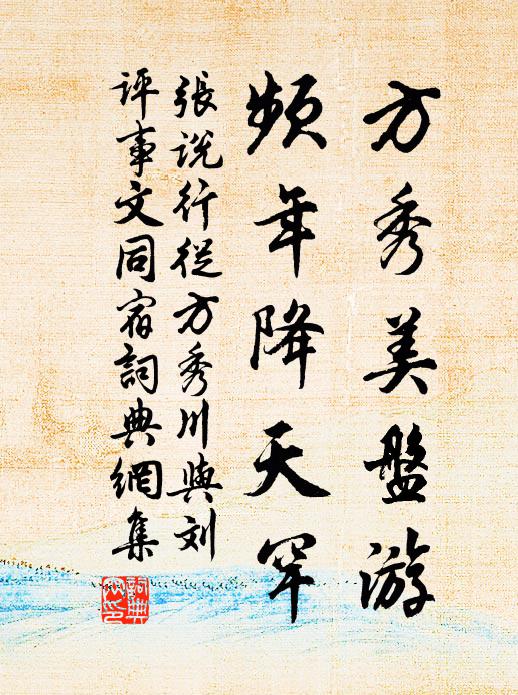 方秀美盤游
頻年降天罕
張说行從方秀川與刘
評事文同宿詞典網集